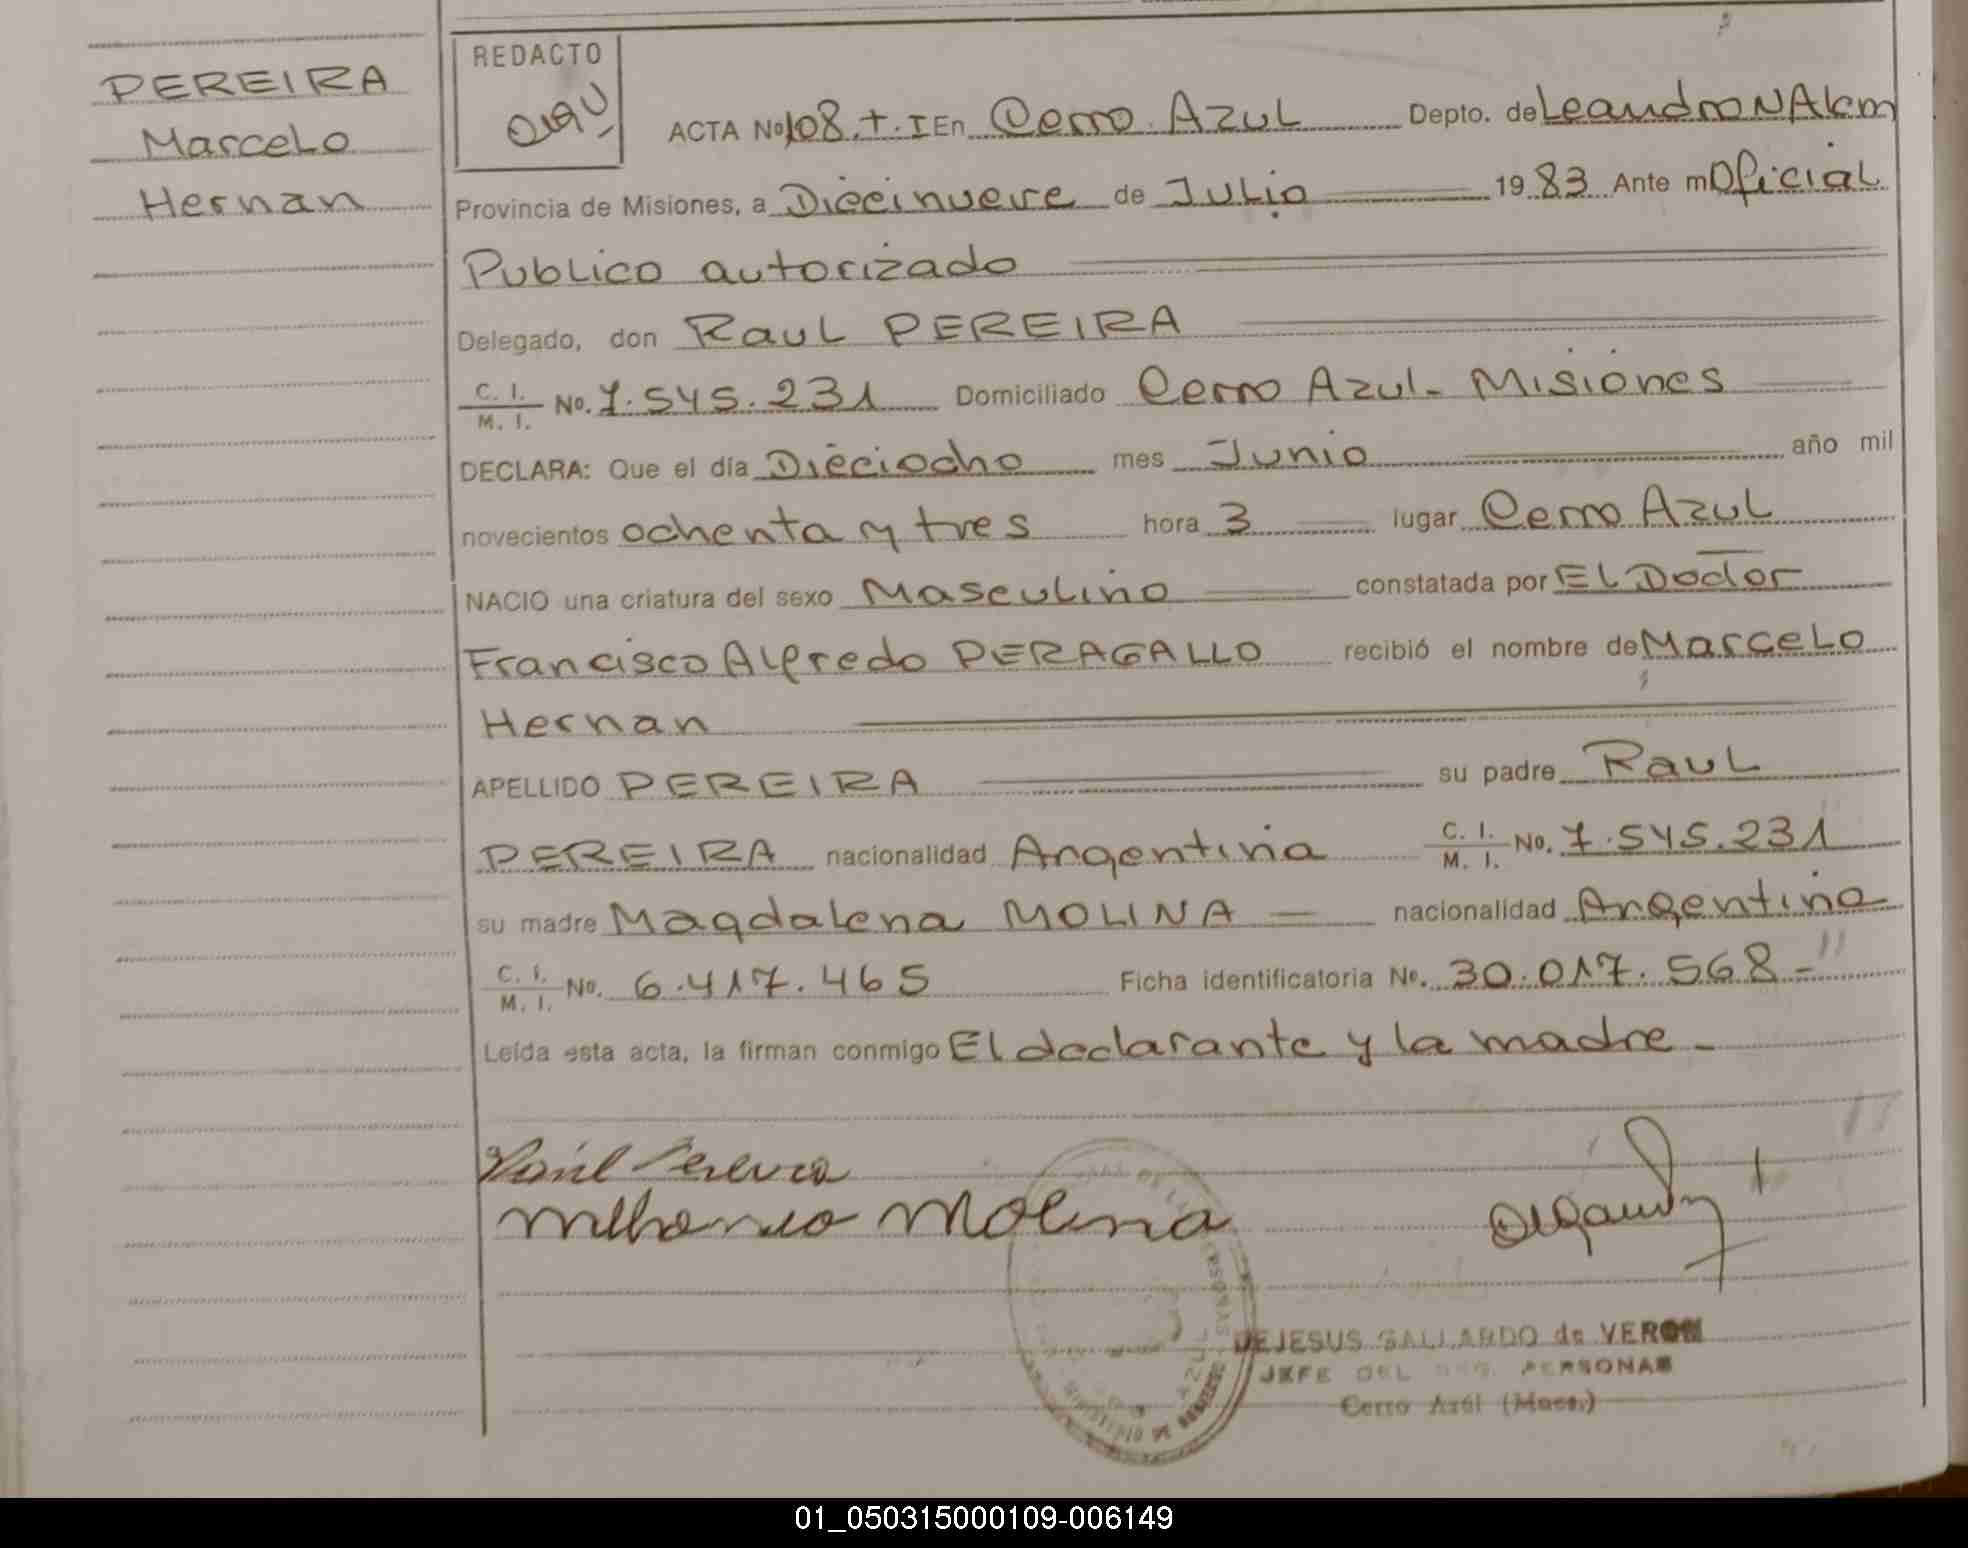 PEREIRA
Marcelo
Hernan
REDACTO
ACTA No 108.T.I En Cerro Azul Depto. de Leandro N Alem
Provincia de Misiones, a Diecinueve de Julio 19 83 Ante mi Oficial
Publico autorizado
Delegado, don Raul PEREIRA
C. I. / M. I. No. 7.545.231 Domiciliado Cerro Azul - Misiones
DECLARA: Que el día Dieciocho mes Junio año mil
novecientos ochenta y tres hora 3 lugar Cerro Azul
NACIO una criatura del sexo Masculino constatada por El Doctor
Francisco Alfredo PERAGALLO recibió el nombre de Marcelo
Hernan
APELLIDO PEREIRA su padre Raul
PEREIRA nacionalidad Argentina C. I. / M. I. No. 7.545.231
su madre Magdalena MOLINA nacionalidad Argentina
C. I. / M. I. No. 6.417.465 Ficha identificatoria No. 30.017.568-
Leída esta acta, la firman conmigo El declarante y la madre -
Raúl Pereira
Molina
DEJESUS GALLARDO de VERON
JEFE DEL REG. PERSONAS
Cerro Azúl (Mnes.)
01_050315000109-006149